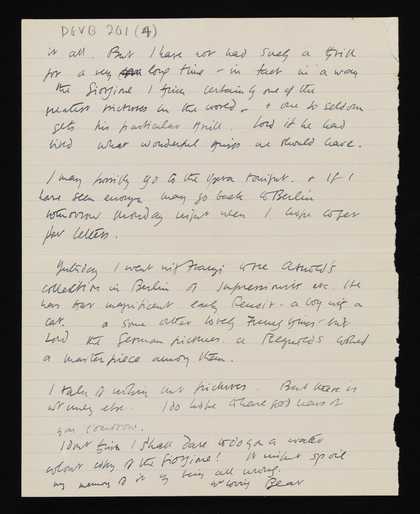 DGVB 201 (4)
it all. But I have not had such a thrill
for a very long time – in fact in a way
the Giorgione I think certainly one of the
greatest pictures in the world. + one so seldom
gets this particular thrill. Lord if he had
lived what wonderful things we should have.
I may possibly go to the Opera tonight. + if I
have seen enough may go back to Berlin
tomorrow Monday night when I hope to get
yr letters.
Yesterday I went with to see Arnold's
collection in Berlin of Impressionists etc. He
has four magnificent early Renoir – a boy with a
cat. + some other lovely French ones – but
Lord the German pictures. a Reynolds looked
a masterpiece among them.
I talk of nothing but pictures. But there is
nothing else. I do hope to have good news of
you tomorrow.
I don't think I shall dare to do you a water
colour copy of the Giorgione! It might spoil
my memory of it by being all wrong.
yr loving Bear